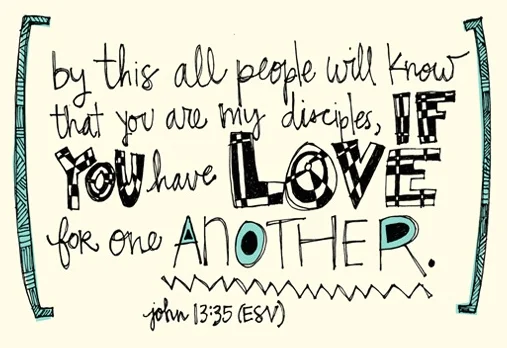 by this all people will know
that you are my disciples, IF
YOU have LOVE
for one ANOTHER.
john 13:35 (ESV)